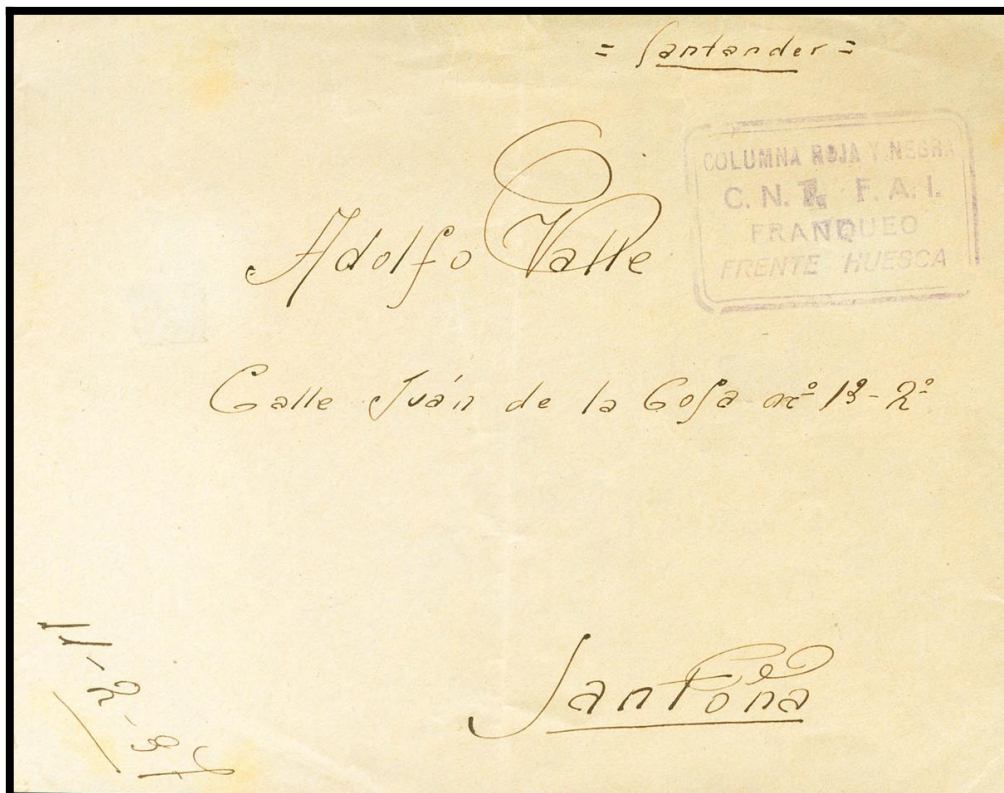 = Santander =
COLUMNA ROJA Y NEGRA
C. N. T. F. A. I.
FRANQUEO
FRENTE HUESCA
Adolfo Valle
Calle Juán de la Cosa nº 13-2º
Santoña
11-2-37